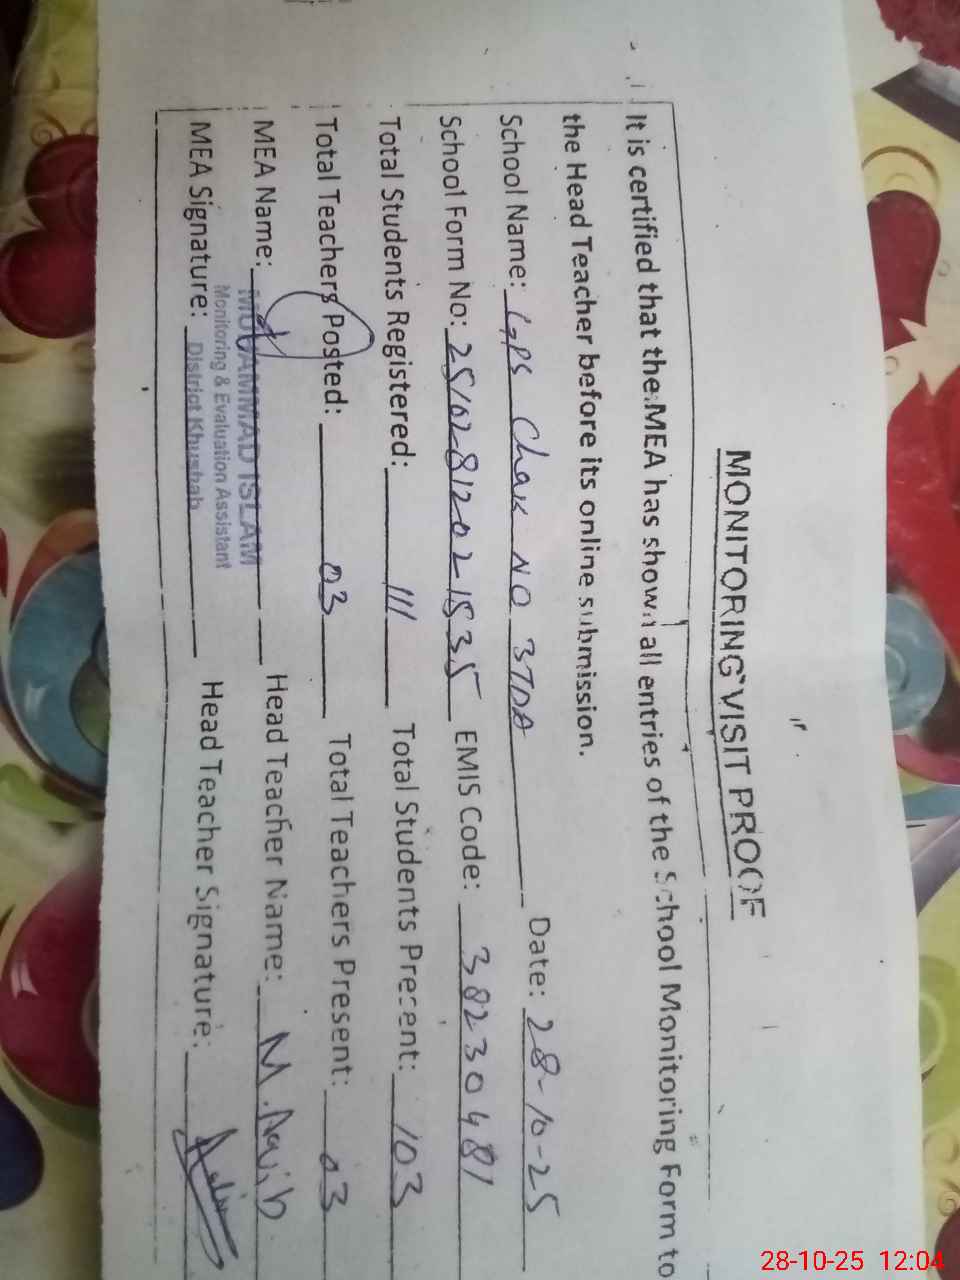 MONITORING VISIT PROOF
It is certified that the MEA has shown all entries of the School Monitoring Form to
the Head Teacher before its online submission.
School Name: GPS Chak NO 37DA Date: 28-10-25
School Form No: 2510281202 1535 EMIS Code: 38230481
Total Students Registered: 111 Total Students Present: 103
Total Teachers Posted: 03 Total Teachers Present: 03
MEA Name: MUHAMMAD ISLAM Head Teacher Name: M.
Monitoring & Evaluation Assistant
MEA Signature: District Khushab Head Teacher Signature:
28-10-25 12:04